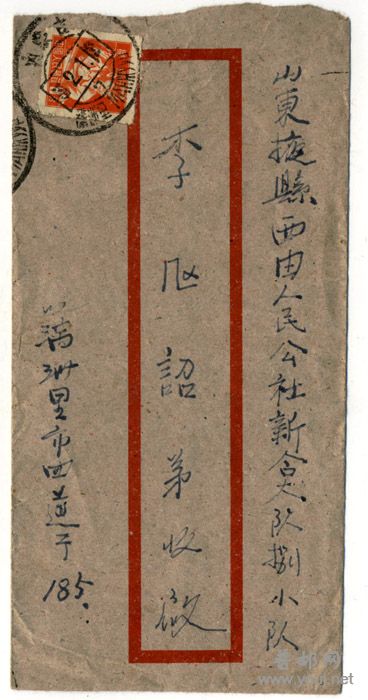 山東掖縣西由人民公社新合大队捌小队
李 詔弟收啟
满洲里市西道于185.
普邮网
www.ypuj.net